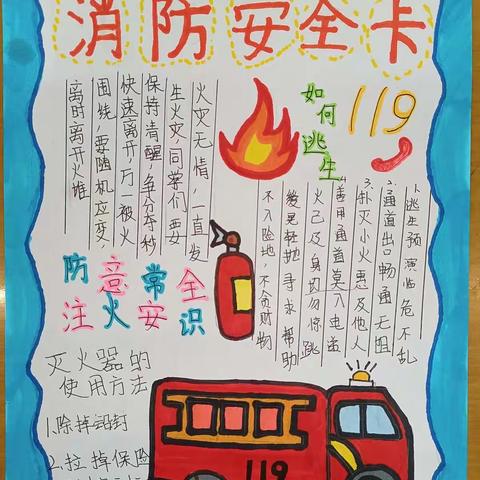 消防安全卡
119
如何逃生
火灾无情,一直发
生火灾,同学们要
保持清醒,争分夺秒
快速离开,万一被火
围烧,要随机应变,
离时离开火堆
1.逃生预演临危不乱
2.通道出口畅通无阻
3.扑灭小火惠及他人
4.善用通道莫入电道
火己及身切勿惊跳
寻求帮助
不入险地,不贪财物
防意常全
注火安识
灭火器的
使用方法
1.除掉铅封
2.拉掉保险
119